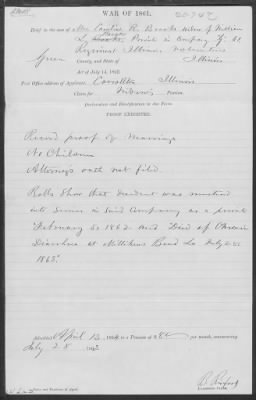 WAR OF 1861.
Brief in the case of Mrs Caroline R. Brooks widow of William
Private in Company
Regiment Illinois Volunteers
Green County, and State of Illinois
Act of July 14, 1862
Post Office address of Applicant: Carrollton Illinois
Claim for Widow's Pension.
Declaration and Identification in Due Form.
PROOF EXHIBITED.
Record proof of Marriage
No Children
Attorneys oath not filed.
Rolls Show that decedent was mustered
into Service in Said Company as a private
February 20 1862 and Died of Chronic
Diarrhoea at Millikens Bend La July
1863.
Admitted April 13 186 to a Pension of $8 per month, commencing
July 28 186